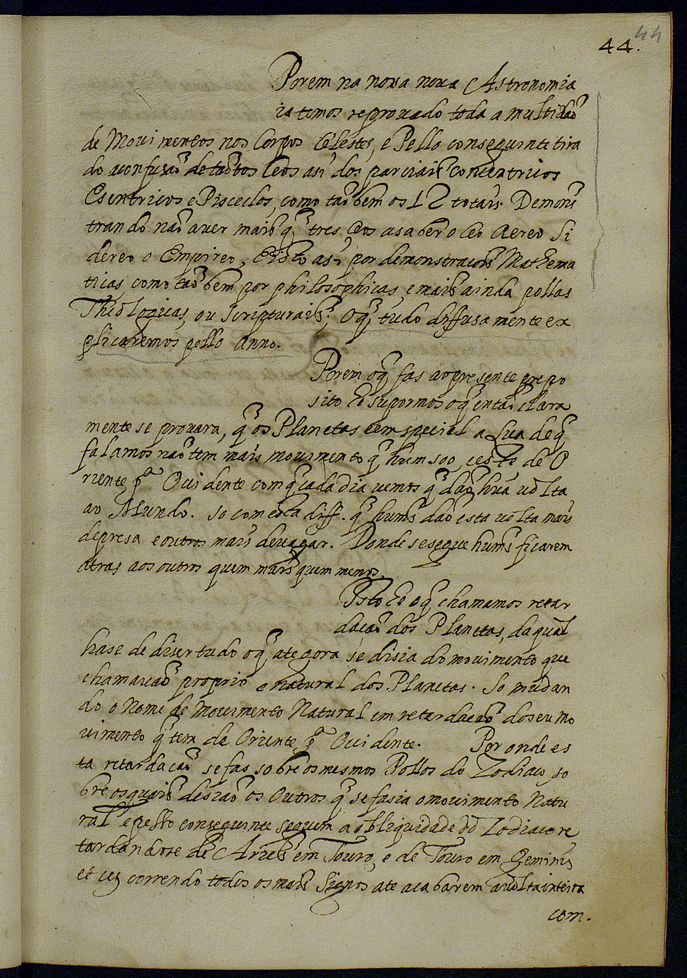 44. 44
Porem na nossa noua Astronomia
ia temos reprouado toda a multidaõ
de Mouimentos nos Corpos Celestes, e Pello conseguinte tira
do aconfusaõ de taõtos Ceos asi dos parciais Concentricos
Excentricos e Pisciclos, como taõ bem os 12 totais. Demons
trando naõ auer mais q̃ tres Ceos asaber o Ceo Aereo Si
dereo o Empireo, E isto asi por demonstracois Mathema
ticas como taõ bem por philosophicas, e mais ainda pellas
Theologicas, ou Scripturais; Oq̃ tudo diffusamente ex
plicaremos pello Anno.
Porem oq̃ fas ao presente propo
sito he supormos oq̃ entaõ Clara
mente se prouara, q̃ os Planetas em special a Lua de q̃
falamos naõ tem mais mouimento q̃ hum soo, e este de O
riente p.ª Ouidente com q̃ cada dia uemos q̃ daõ huã uolta
ao Mundo. so com esta diff.ª q̃ huns daõ esta uolta mais
depresa e outros mais deuagar. Donde se segue huns ficarem
atras aos outros quem mais quem menos.
Isto he oq̃ chamamos retar
dacaõ dos Planetas, da qual
hase de dizer tudo oq̃ ategora se disia do mouimento que
chamauaõ proprio e natural dos Planetas. So mudan
do o Nome de Mouimento Natural em retardacaõ do seu mo
uimento q̃ tem de Oriente p.ª Ouidente. Por onde es
ta retardacaõ se fas sobre os mesmos Pollos do Zodiaco, so
bre os quais desiaõ os Outros q̃ se fasia o mouimento Natu
ral e pello conseguinte seguem a obliquidade do Zodiaco re
tardandose de Aries em Touro, e de Touro em Geminis
et c. correndo todos os mais Signos ate acabarem a uolta inteira
com.